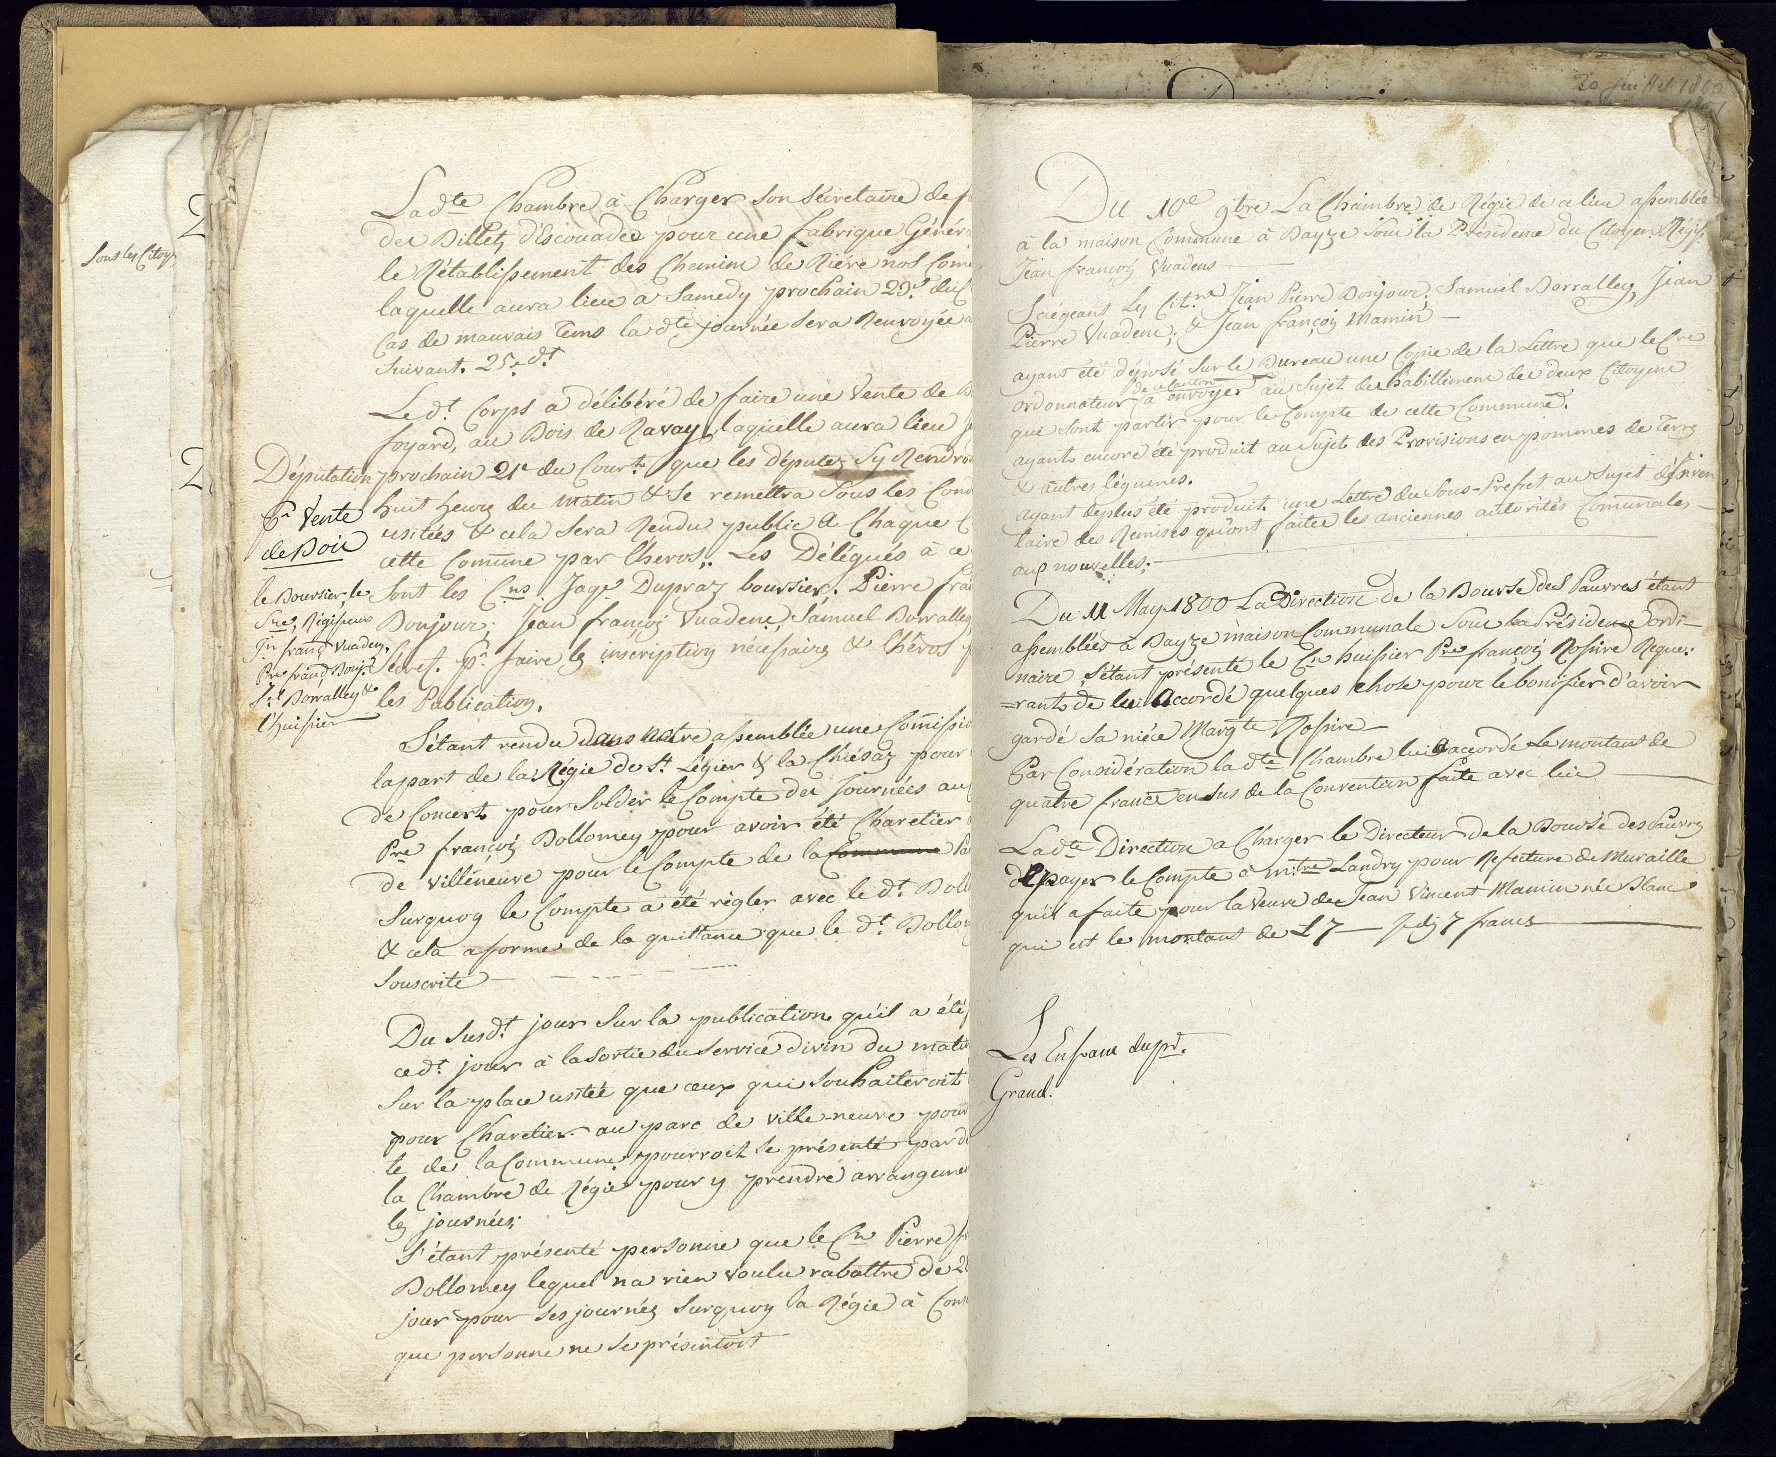 20 juillet 1800
Sous les Citoy
La dte Chambre à Charger son Sécretaire de f
des Billets d'Escouades pour une fabrique Génér
le Rétablissement des Chemins de Riére nos Com
laquelle aura lieu a Samedy prochain 29e du C
Cas de mauvais Tems la dte journée sera Renvoyée a
Suivant. 25e dt
Le dt Corps a délibéré de faire une Vente de B
foyard, au Bois de Ravay, laquelle aura lieu
prochain 21e du Court que les députez Sy Rendro
huit heures du Matin & Se remettra Sous les Con
usitées & cela sera Rendu public a Chaque C
cette Comune par Chéros,. Les Délégués à ce
sont les Cns Jaqe Dupraz boursier, Pierre fra
Bonjour, Jean françois Vuadens, Samuel Borralley
Secret. pr faire les inscription nécessaires & Chéros p
les Publication.
Députation
pr Vente
de Bois
le Boursier, le
Sre, Régisseur
Jn franç Vuadens,
Pre franç Bonjr
Sl Borralley &
l'huissier
S'étant rendu dans notre assemblée une Comissio
la part de la Régie de St Légier & la Chiésaz pour
de Concert pour Solder le Compte des Journées au
Pre françois Dollomey pour avoir été Charetier
de villeneuve pour le Compte de la Commune
Surquoy le Compte a été règler avec le dt Doll
& cela a forme de la quittance que le dt Dollo
Souscrite
Du Susdt jour Sur la publication qu'il a été
ce dt jour à la Sortie du Service divin du mati
Sur la place usitée que ceux qui Souhaiteroit
pour Charetier au parc de Ville neuve pour
te de la Commune, pourroit se présenté par d
la Chambre de Régie pour y prendre arrangeme
les journées;
S'étant présenté personne que le Cn Pierre f
Dollomey lequel na rien voulu rabattre de 2
jour pour ses journées Surquoy la Régie à Cons
que personne ne se présentoit
Du 10e 9bre La Chambre de Régie de ce lieu assemblée
à la maison Commune à Bayze sous la Présidence du Citoyen Régisr
Jean françois Vuadens
Siégeants Les Cit.ns Jean Pierre Bonjour, Samuel Borralley, Jean
Pierre Vuadens, & Jean françois Mamin
ayant été déposé Sur le Bureau une Copie de la Lettre que le Cre
ordonnateur de ce Canton a envoyer au Sujet de l'habillement des deux Citoyens
qui sont partir pour le Compte de cette Commune.
ayant encore été produit au Sujet des Provisions en pommes de Terre
& autres légumes.
ayant deplus été produit une Lettre du Sous-Prefret au Sujet
taire des Remises qu'ont faites les anciennes autorités Communales
aux nouvelles;
Du 11 May 1800 La Direction de la Bourse des Pauvres étant
assemblées à Bayze maison Communale Sous la Présidence ordi-
naire, S'étant présenté le Cn huissier Pre françois Rossire Reque:
=rant de lui Accordé quelques chose pour le bonifier d'avoir
gardé sa niéce Margte Rossire
Par Considération la dte Chambre lui a accordé Le montant de
quatre francs en sus de la Convention faite avec lui
La dte Direction a Charger le Directeur de la Bourse des Pauvres
de payer le Compte à mtre Landry pour Refecture de Muraille
qu'il a faite pour la Veuve de Jean Vincent Mamin née Blanc
qui est le montant de L 7 — Je dis 7 francs
Les Enfans du pr.
Grand.